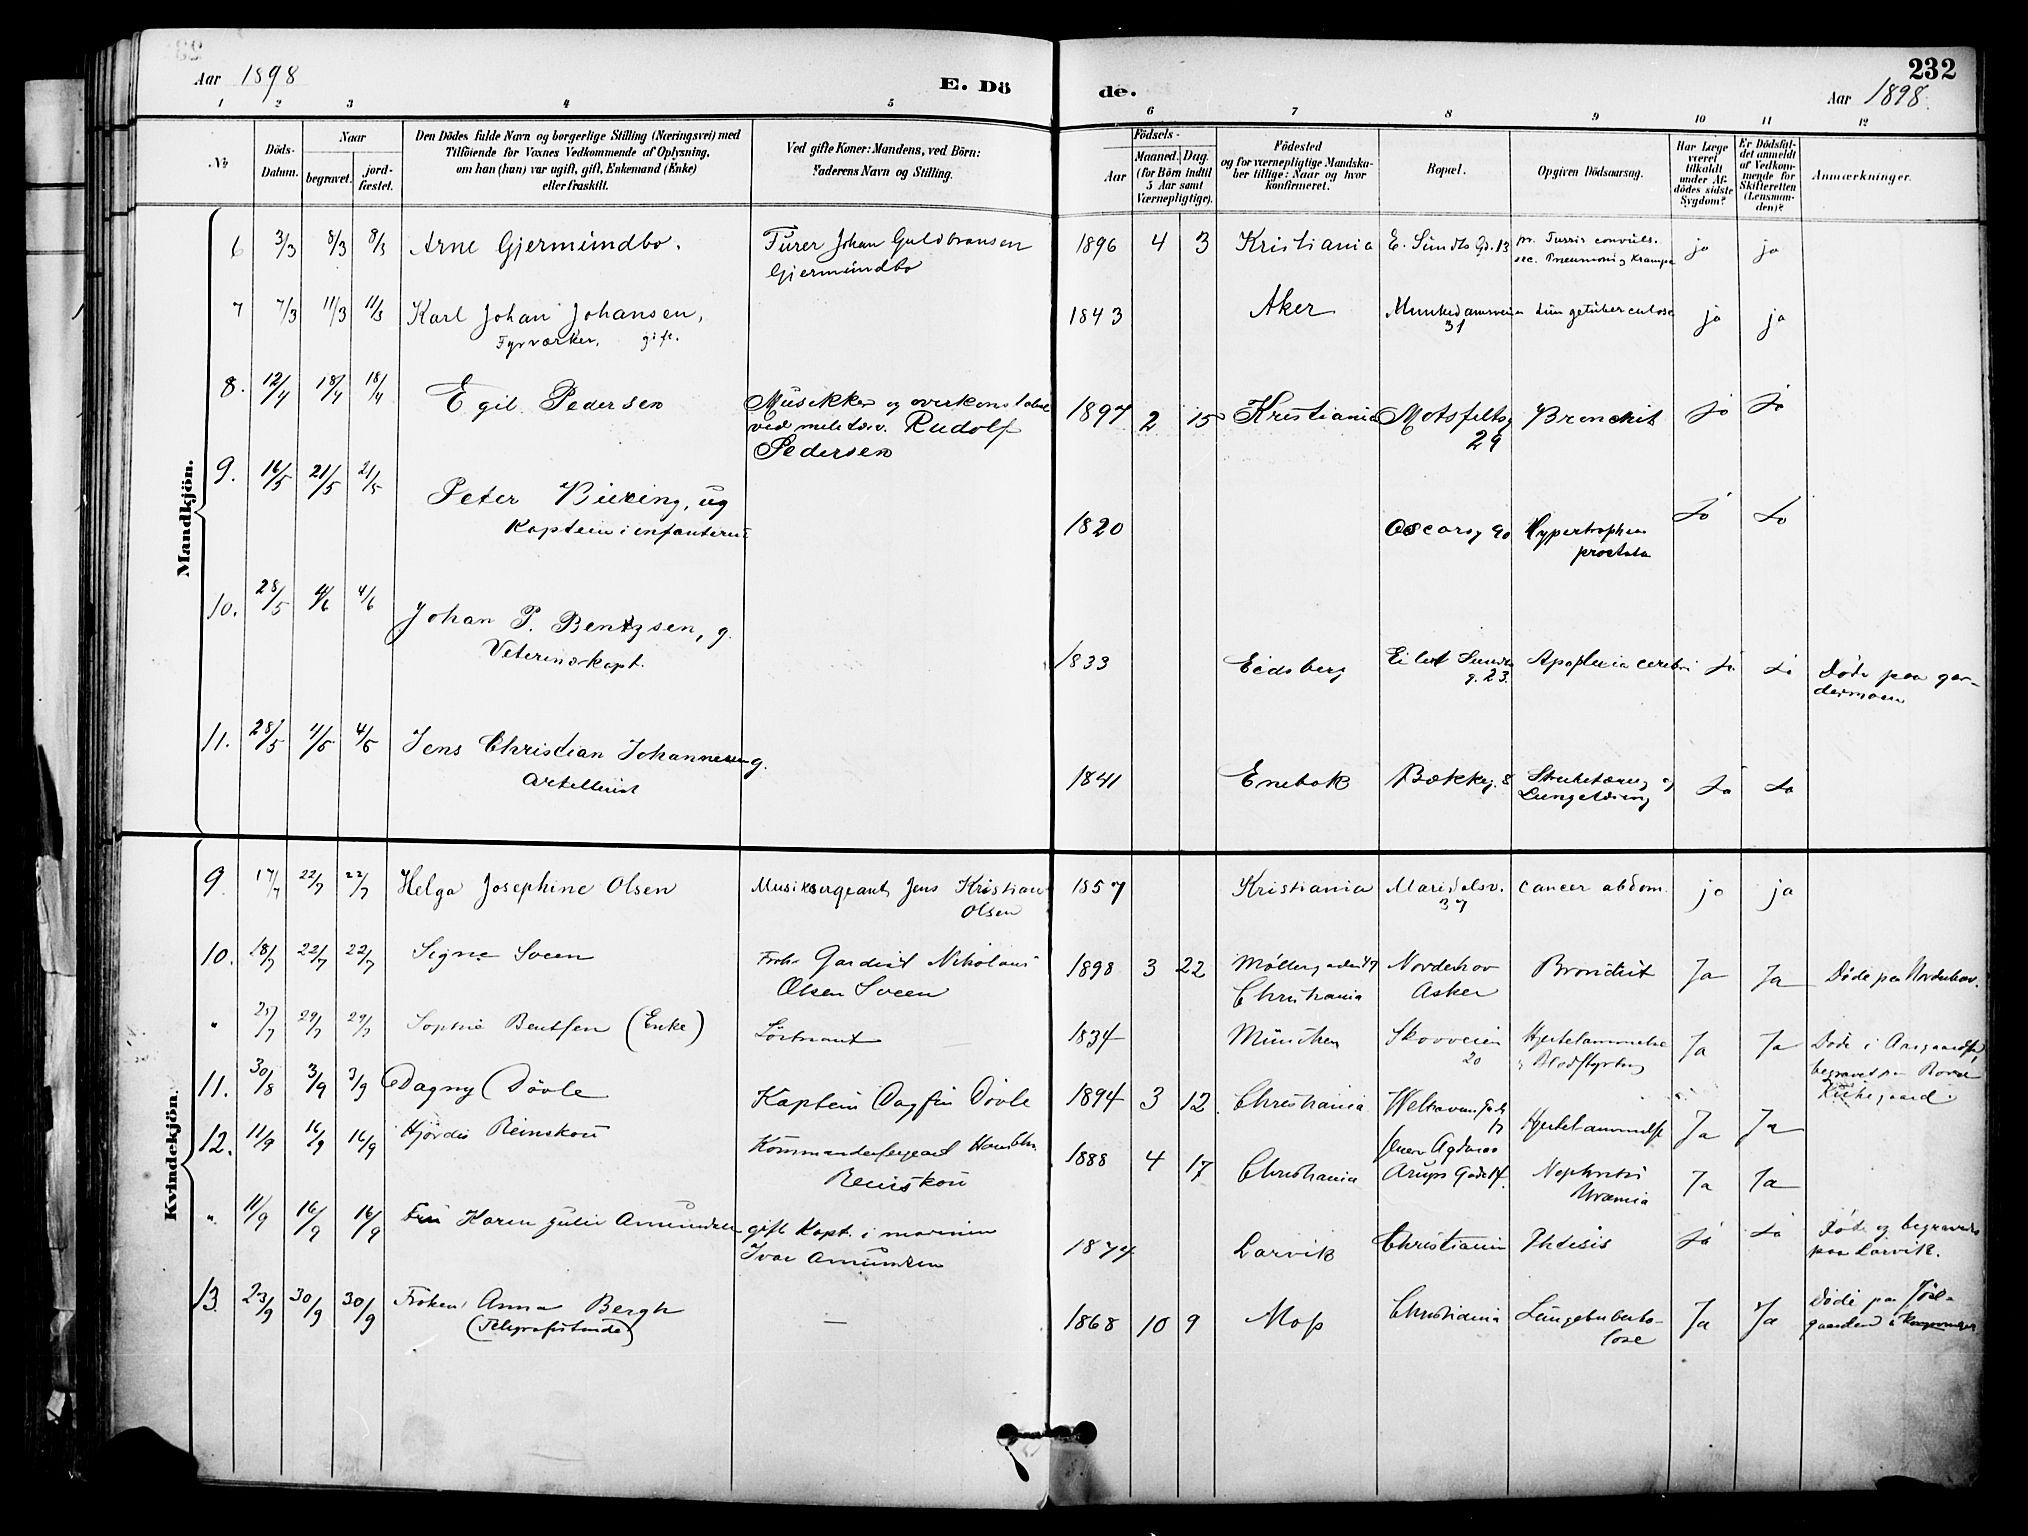 Aar 1898
E. Dö
de.
232
Aar 1898.
1 2 3 4 5 6 7 8 9 10 11 12
No
Döds-
Datum.
Naar
begravet.
jord-
fæstet.
Den Dödes fulde Navn og borgerlige Stilling (Næringsvei) med
Tilföiende for Voxnes Vedkommende af Oplysning,
om han (hun) var ugift, gift, Enkemand (Enke)
eller fraskilt.
Ved gifte Koner: Mandens, ved Börn:
Faderens Navn og Stilling.
Födsels-
Aar
Maaned.
Dag.
(for Börn indtil
5 Aar samt
Værnepligtige).
Födested
og for værnepligtige Mandska-
ber tillige: Naar og hvor
konfirmeret.
Bopæl.
Opgiven Dödsaarsag.
Har Læge
været
tilkaldt
under Af-
dödes sidste
Sygdom?
Er Dödsfal-
det anmeldt
af Vedkom-
mende for
Skifteretten
(Lensman-
den)?
Anmærkninger.
Mandkjön.
6 3/3 8/3 8/3 Arne Gjermundbo. Furer Johan Guldbransen 1896 4 3 Kristiania E. Sundts Gd. 13 pr. Tussis convuls. ja ja
Gjermundbo sec. Pneumoni og Krampe
7 7/3 11/3 11/3 Karl Johan Johansen, 1843 Aker Munkedamsveien Lungetuberculose ja ja
Fyrværker. gift. 31
8. 12/4 18/4 18/4 Egil Pedersen Musikker og overkonstabel 1897 2 15 Kristiania Motsfeltsg Bronchit Ja Ja
ved militær. Rudolf 29
Pedersen
9. 16/5 21/5 21/5 Peter Büxing, ug 1820 Oscarsg 90 Hypertrophia Ja Ja
Kaptein i infanteriet prostata
10. 28/5 4/6 4/6 Johan P. Bentzsen, g. 1833 Eidsberg Eilert Sundts Apoplexia cerebri Ja Ja Døde paa gar-
Veterinærkapt. g. 23. dermoen
11. 28/5 4/6 Jens Christian Johannesen g. 1841 Enebak Bækkeg. 8 Strubetæring og Ja Ja
Artillerist Lungetæring
Kvindekjön.
9 17/7 22/7 22/7 Helga Josephine Olsen Musiksergeant Jens Kristian 1857 Kristiania Maridalsv. cancer abdom. ja ja
Olsen 37
10. 18/7 22/7 22/7 Signe Sveen Gardist Nikolai 1898 3 22 Møllergaden 49 Norderhov Bronchit Ja Ja Døde paa Norderhov.
Olsen Sveen Christiania Asker
" 25/7 29/7 29/7 Sophie Bentsen (Enke) Löitnant 1834 München Skovveien Hjertelammelse Ja Ja Døde i
20 og Blodstyrtning begravet paa
Kirkegaard.
11. 30/8 3/9 3/9 Dagny Døvle Kaptein Dagfin Døvle 1894 3 12. Christiania Welhavens Gade Hjertelammelse Ja Ja
12. 11/9 16/9 16/9 Hjördis Reinskou Kommandersergeant 1888 4 17 Christiania Arups Gade Nephritis Ja Ja
Reinskou Uræmia
" 11/9 16/9 16/9 Fru Karen Julie Amundsen gift Kapt. i marinen 1874 Larvik Christiania Phtisis Ja Ja Døde og begravedes
Ivar Amundsen paa Larvik.
13. 23/9 30/9 30/9 Fröken Anna Bergh — 1868 10 9 Moss Christiania Lungetuberku- Ja Ja Døde paa
(Telegrafistinde) lose